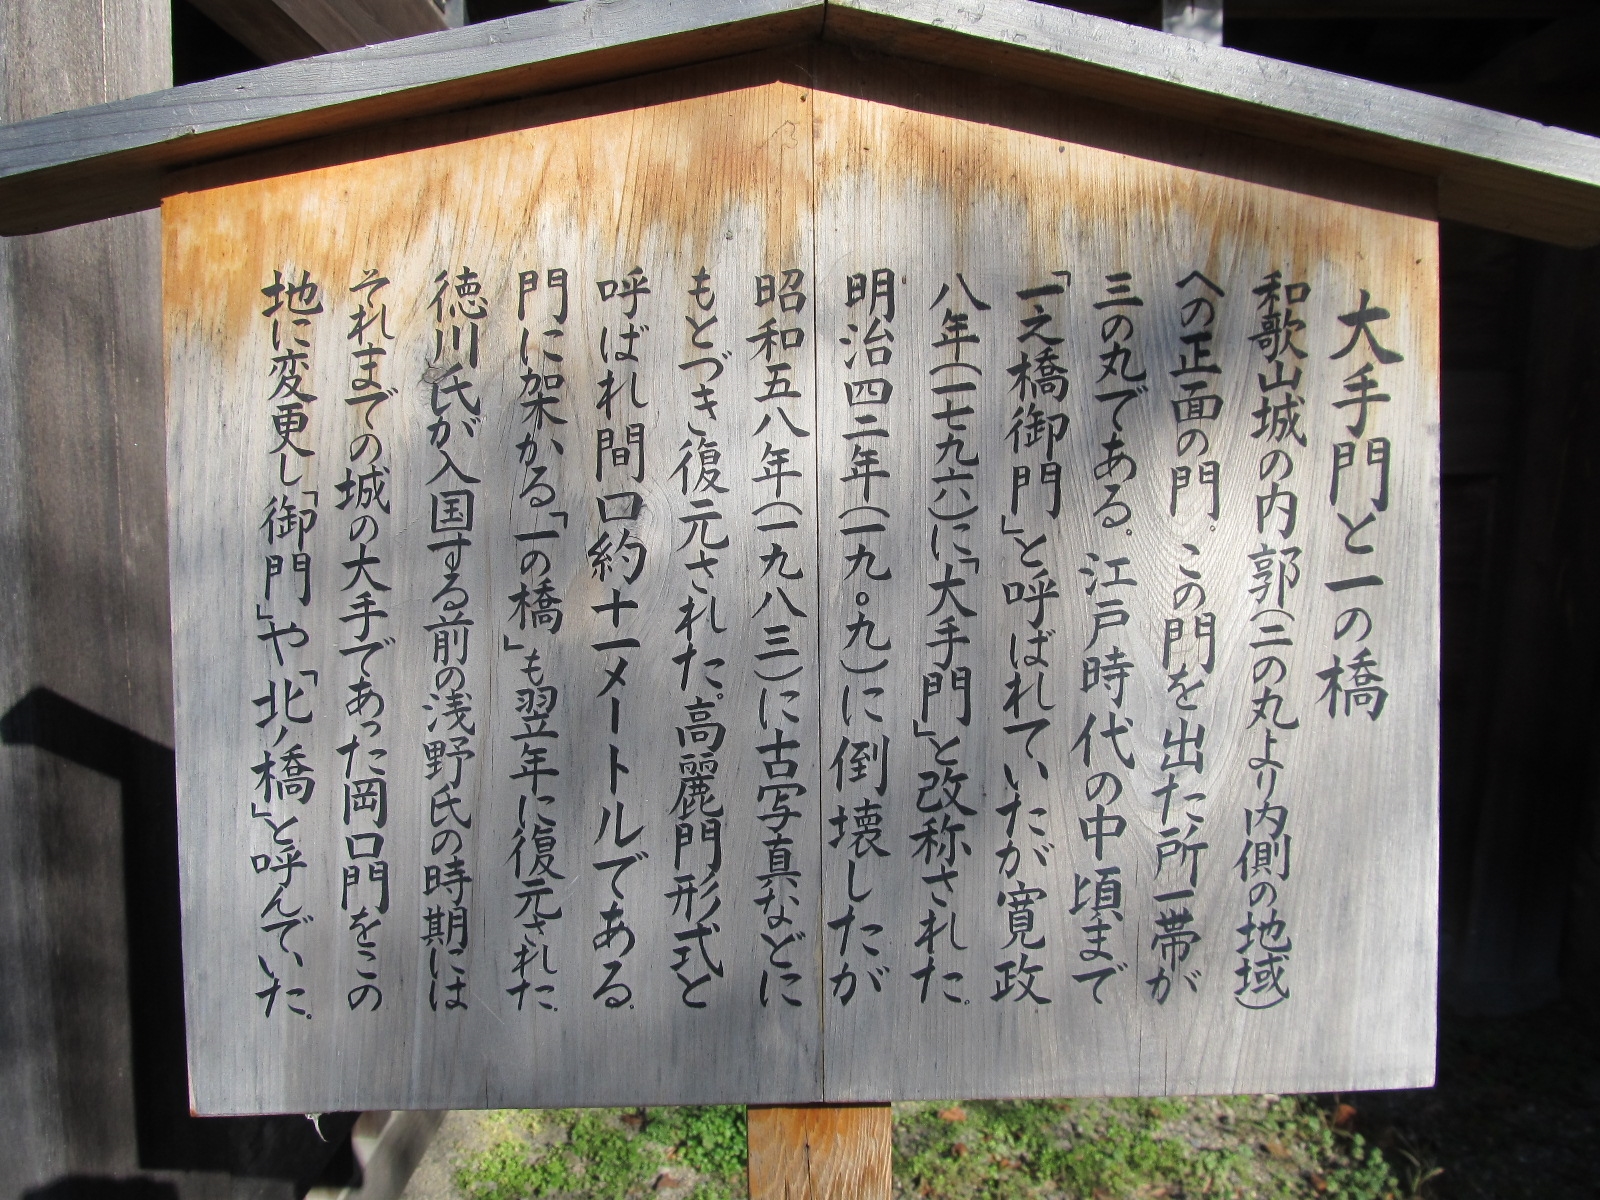 大手門と一の橋
和歌山城の内郭（二の丸より内側の地域）
への正面の門。この門を出た所一帯が
三の丸である。江戸時代の中頃まで
「一之橋御門」と呼ばれていたが寛政
八年（一七九六）に「大手門」と改称された。
明治四二年（一九〇九）に倒壊したが
昭和五八年（一九八三）に古写真などに
もとづき復元された。高麗門形式と
呼ばれ間口約十一メートルである。
門に架かる「一の橋」も翌年に復元された。
徳川氏が入国する前の浅野氏の時期には
それまでの城の大手であった岡口門をこの
地に変更し「御門」や「北ノ橋」と呼んでいた。